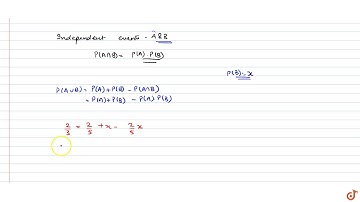 Independent events - A & B
P(A∩B) = P(A).P(B)
P(B) = x
P(A∪B) = P(A) + P(B) - P(A∩B)
= P(A) + P(B) - P(A) P(B)
2/3 = 2/5 + x - 2/5 x